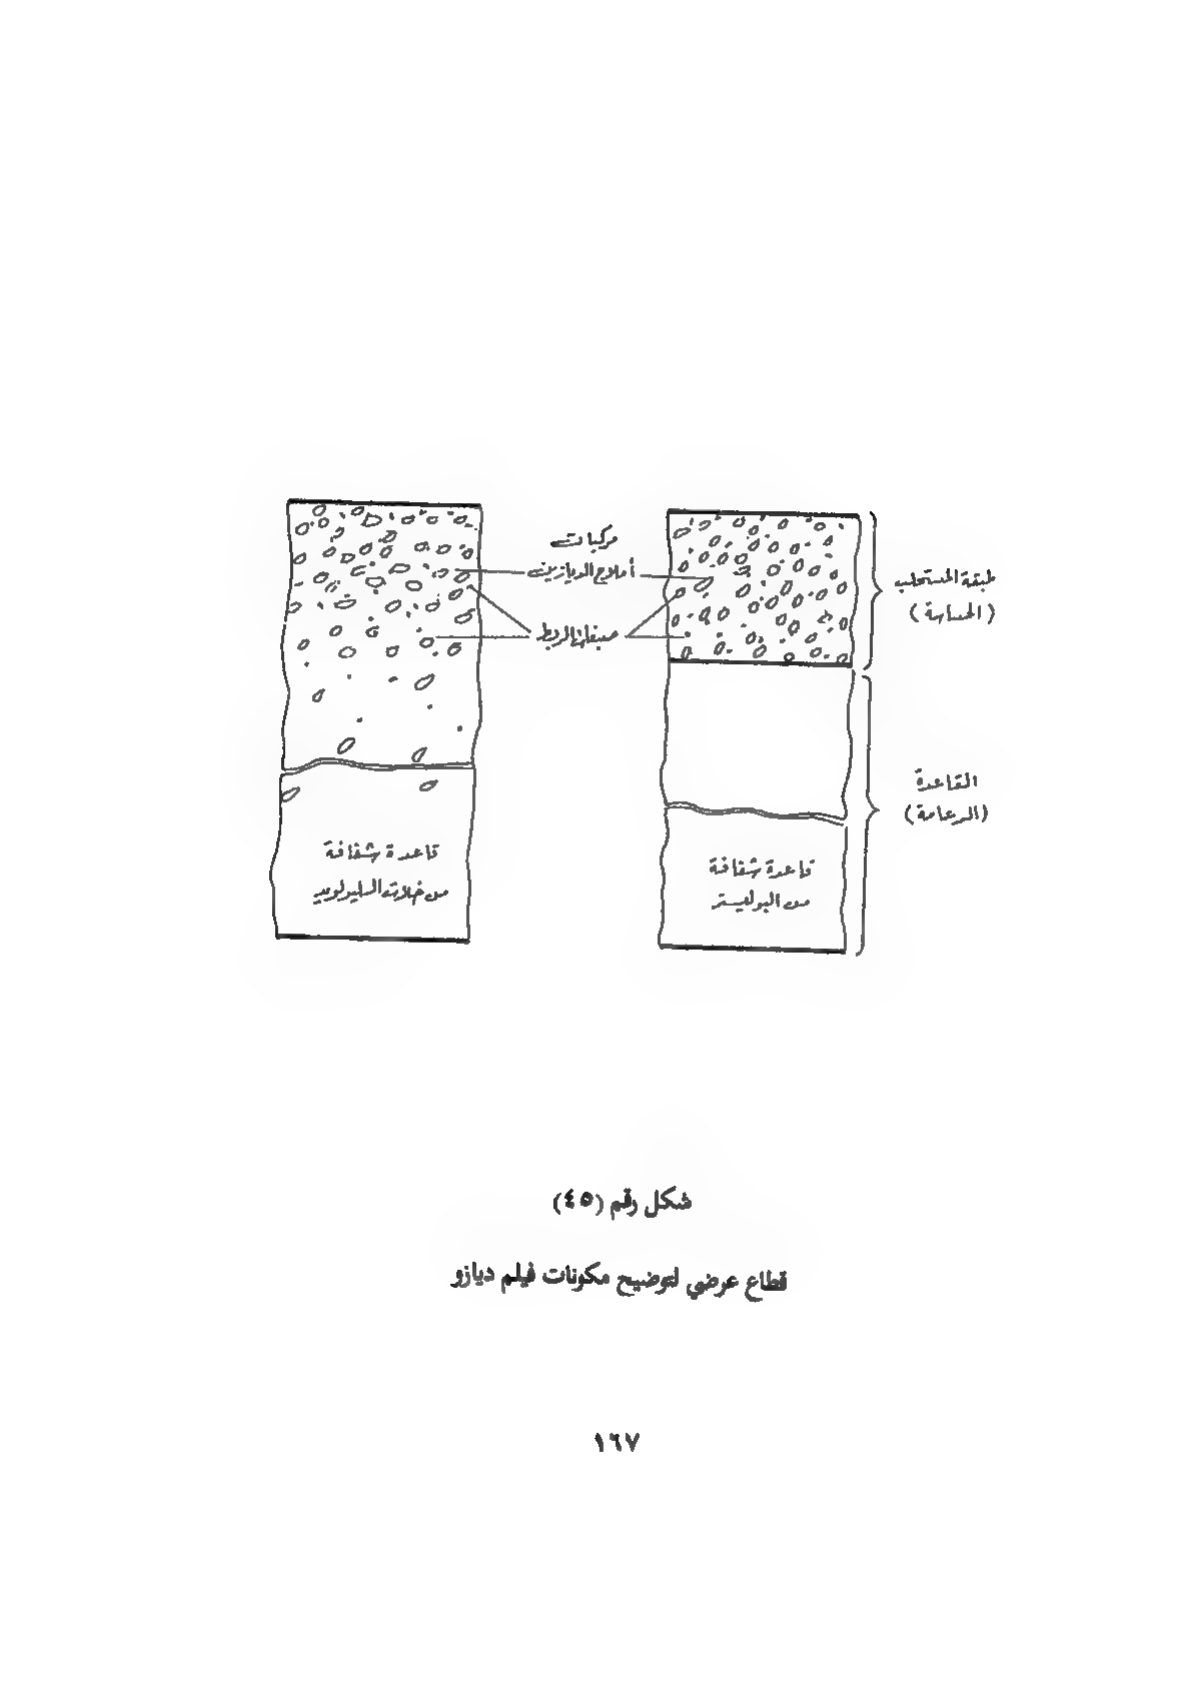 مركبات
أملاح الديازنيوم
صبغات الربط
طبقة المستحلب
(الحساسة)
القاعدة
(الدعامة)
قاعدة شفافة
من خلات السليولويد
قاعدة شفافة
من البوليستر
شكل رقم (٤٥)
قطاع عرضي لتوضيح مكونات فيلم ديازو
١٦٧